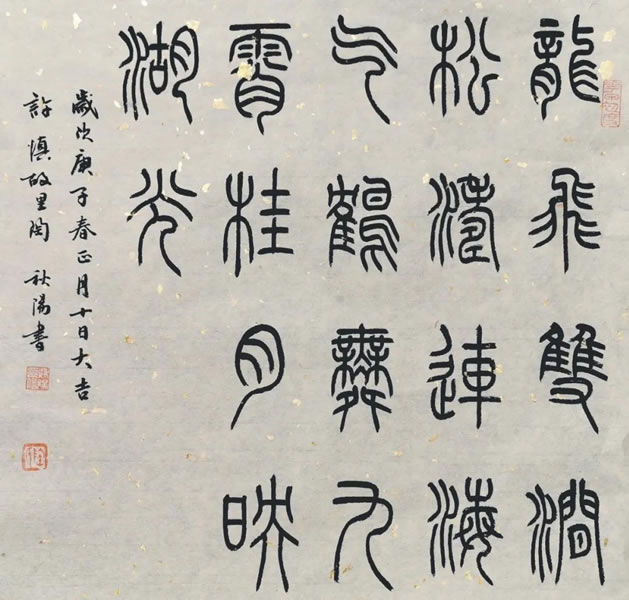 龍飛雙澗
松濤連海
气鶴舞九
霄桂月映
湖光
歲次庚子春正月十日大吉
許慎故里陶秋陽書